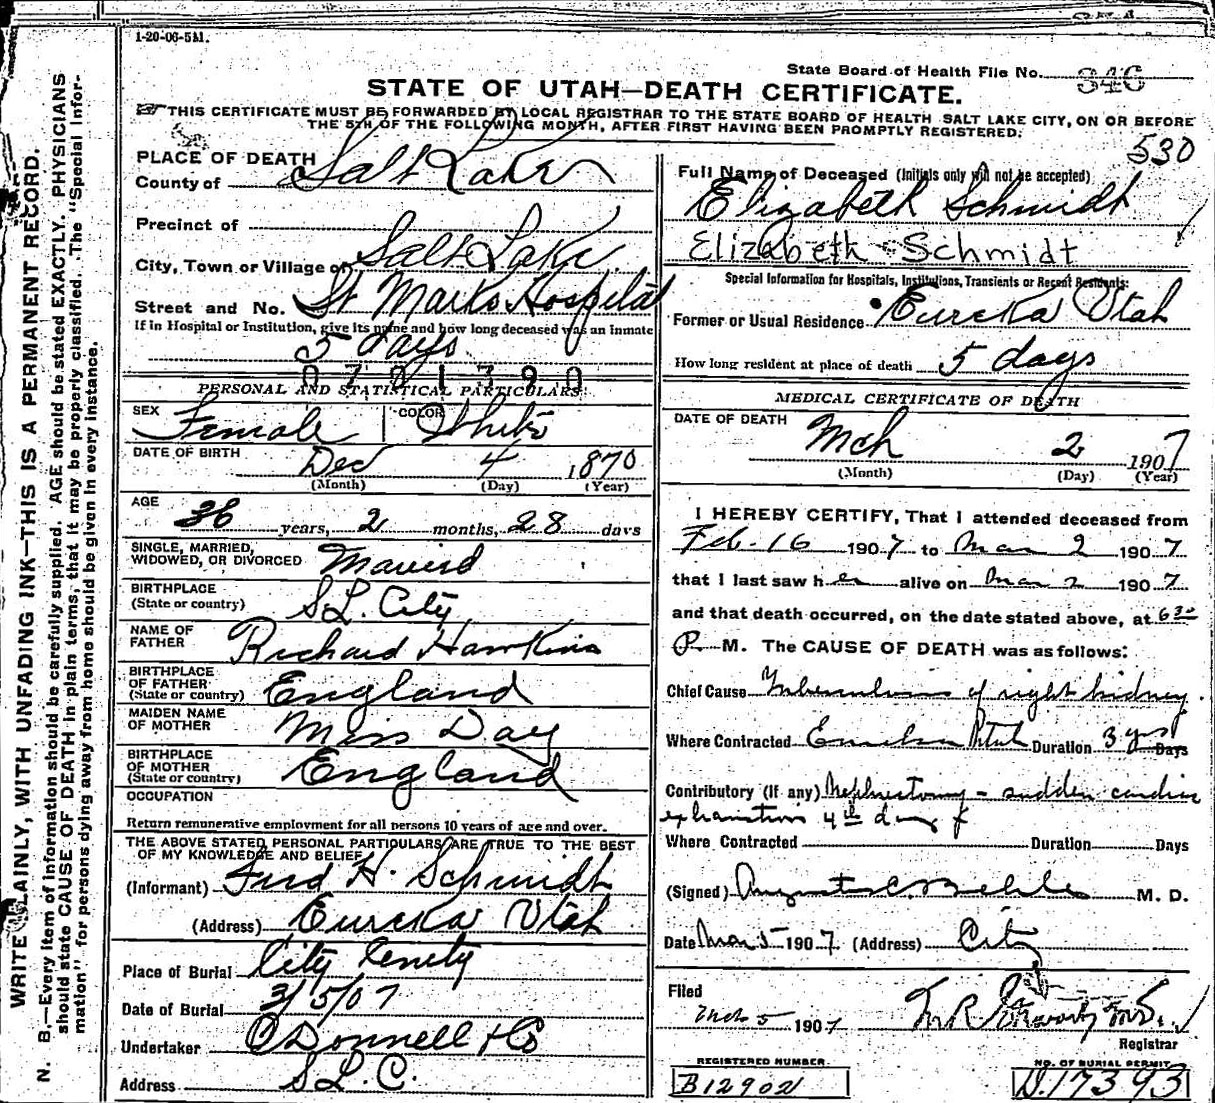 1-20-06-5M.
State Board of Health File No. 346
STATE OF UTAH—DEATH CERTIFICATE.
THIS CERTIFICATE MUST BE FORWARDED BY LOCAL REGISTRAR TO THE STATE BOARD OF HEALTH SALT LAKE CITY, ON OR BEFORE
THE 5TH OF THE FOLLOWING MONTH, AFTER FIRST HAVING BEEN PROMPTLY REGISTERED.
530
WRITE PLAINLY, WITH UNFADING INK—THIS IS A PERMANENT RECORD.
N. B.—Every item of information should be carefully supplied. AGE should be stated EXACTLY. PHYSICIANS
should state CAUSE OF DEATH in plain terms, that it may be properly classified. The "Special Infor-
mation" for persons dying away from home should be given in every instance.
PLACE OF DEATH
County of Salt Lake
Precinct of
City, Town or Village of Salt Lake
Street and No. St Marks Hospital
If in Hospital or Institution, give its name and how long deceased was an inmate
5 days
0701790
PERSONAL AND STATISTICAL PARTICULARS
SEX Female COLOR White
DATE OF BIRTH Dec 4 1870
(Month) (Day) (Year)
AGE 36 years, 2 months, 28 days
SINGLE, MARRIED,
WIDOWED, OR DIVORCED Maried
BIRTHPLACE
(State or country) S L. City
NAME OF
FATHER Richard Hawkins
BIRTHPLACE
OF FATHER
(State or country) England
MAIDEN NAME
OF MOTHER Miss Day
BIRTHPLACE
OF MOTHER
(State or country) England
OCCUPATION
Return remunerative employment for all persons 10 years of age and over.
THE ABOVE STATED PERSONAL PARTICULARS ARE TRUE TO THE BEST
OF MY KNOWLEDGE AND BELIEF
(Informant) Fred H. Schmidt
(Address) Eureka Utah
Place of Burial City Cemety
Date of Burial 3/5/07
Undertaker O'Donnell & Co
Address S L. C.
Full Name of Deceased (Initials only will not be accepted)
Elizabeth Schmidt
Elizabeth Schmidt
Special Information for Hospitals, Institutions, Transients or Recent Residents:
Former or Usual Residence Eureka Utah
How long resident at place of death 5 days
MEDICAL CERTIFICATE OF DEATH
DATE OF DEATH
Mch 2 1907
(Month) (Day) (Year)
I HEREBY CERTIFY, That I attended deceased from
Feb. 16 1907 to Mar 2 1907
that I last saw her alive on Mar 2 1907
and that death occurred, on the date stated above, at 6 30
P. M. The CAUSE OF DEATH was as follows:
Chief Cause Tuberculosis of right kidney.
Where Contracted Eureka Utah Duration 3 yrs Days
Contributory (If any) Nephrectomy - sudden cardiac
exhaustion 4th day
Where Contracted Duration Days
(Signed) M. D.
Date Mar 5 1907 (Address) City
Filed
Mch 5 1907
Registrar
REGISTERED NUMBER
B12902
NO. OF BURIAL PERMIT
D.17393